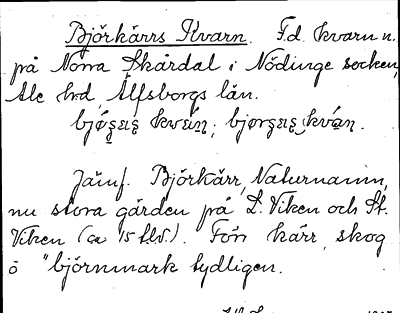 Björkärrs Kvarn. Fd. kvarn n.
på Norra Skårdal i Nödinge socken,
Ale hrd, Älfsborgs län.
Jämf. Björkärr, Naturnamn,
nu stora gården på L. Viken och St.
Viken (ca 15 hld.). Förr kärr, skog
o "björnmark tydligen.